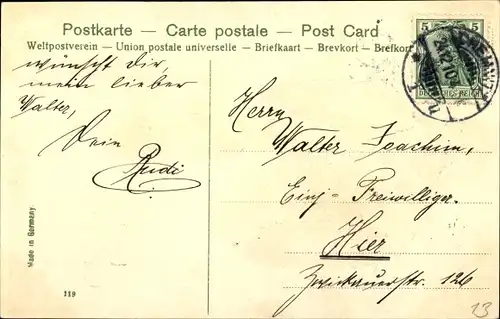 Postkarte — Carte postale — Post Card
Weltpostverein — Union postale universelle — Briefkaart — Brevkort — Brefkort
wünscht Dir,
mein lieber
Walter,
Dein
Rudi
5 5
DEUTSCHES REICH
CHEMNITZ
24.12.10
Herrn
Walter Joachim,
Einj-Freiwilliger.
Hier
Zwickauerstr. 126
Made in Germany
119
13